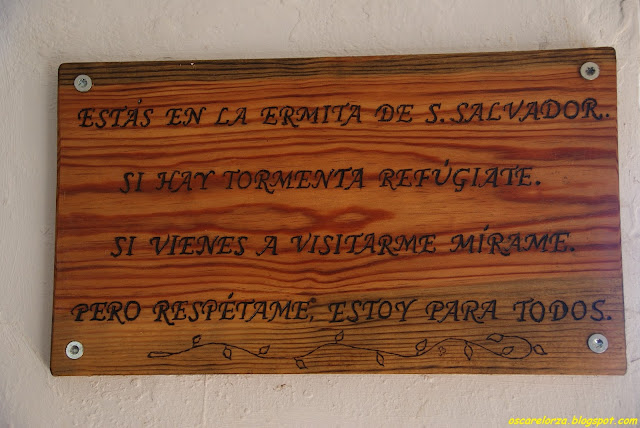 ESTÁS EN LA ERMITA DE S. SALVADOR.
SI HAY TORMENTA REFÚGIATE.
SI VIENES A VISITARME MÍRAME.
PERO RESPÉTAME, ESTOY PARA TODOS.
oscarelorza.blogspot.com